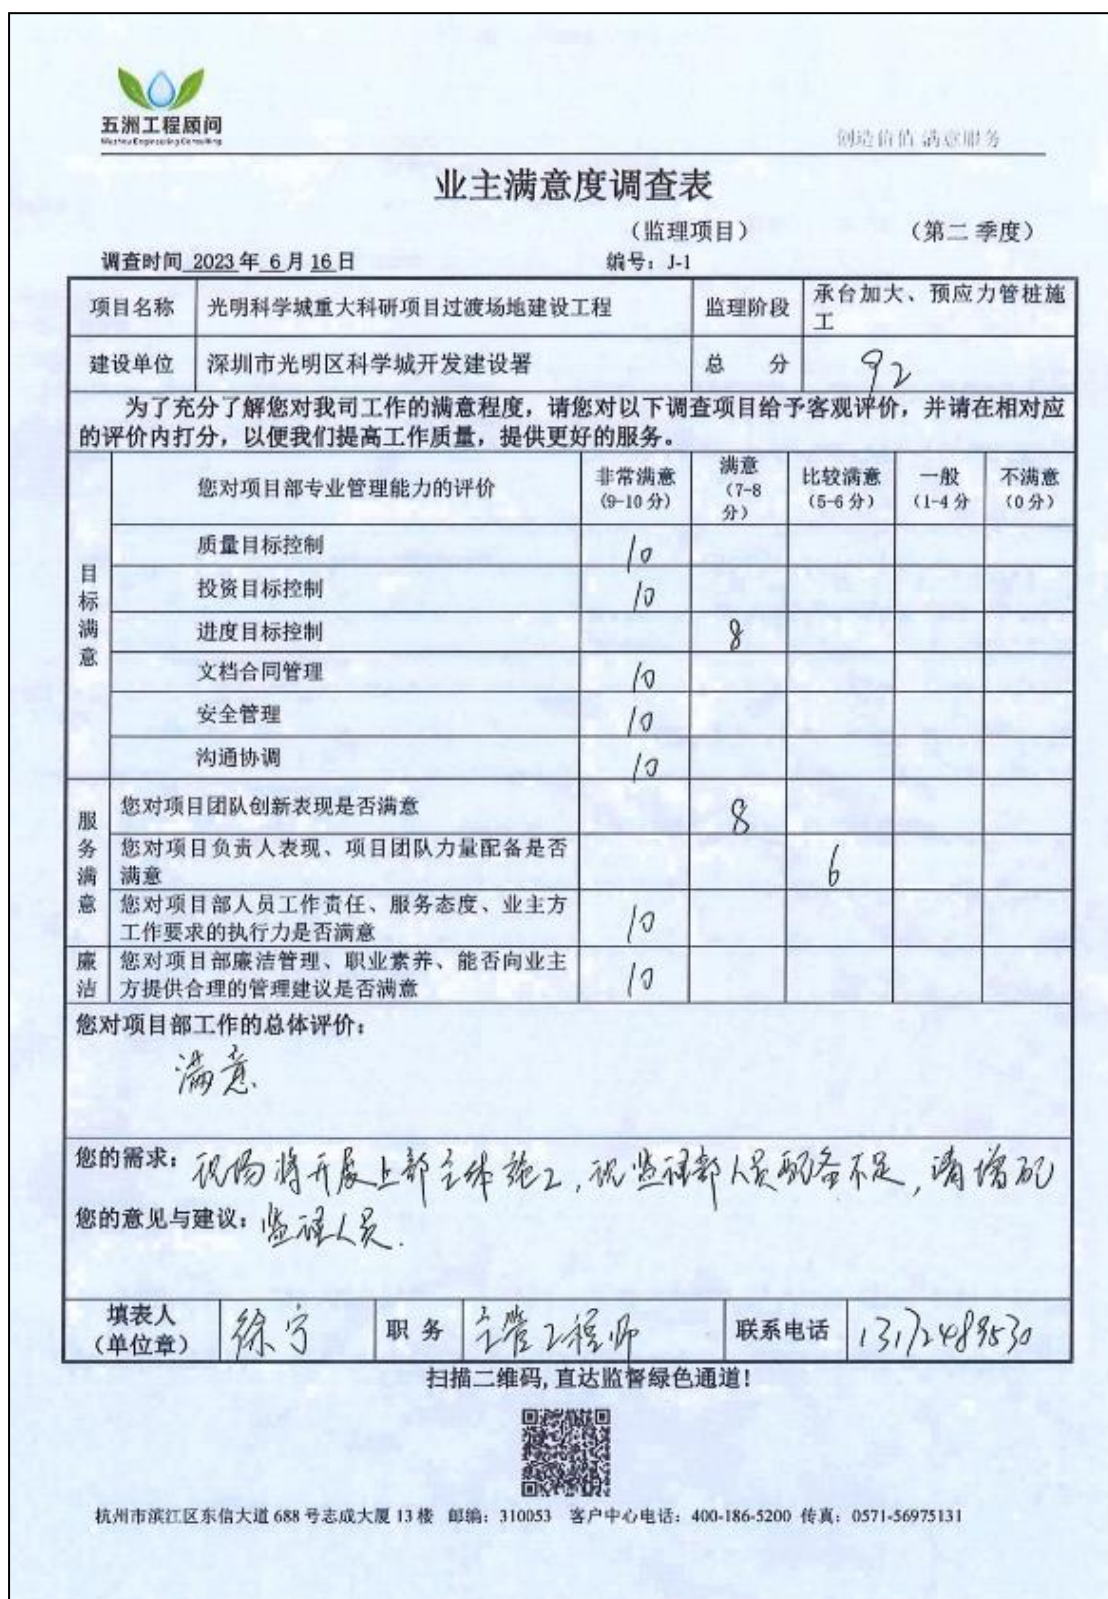 五洲工程顾问
Wuzhou Engineering Consulting
创造价值 满意服务
业主满意度调查表
（监理项目） （第二 季度）
调查时间 2023 年 6 月 16 日 编号：J-1
项目名称 光明科学城重大科研项目过渡场地建设工程 监理阶段 承台加大、预应力管桩施
工
建设单位 深圳市光明区科学城开发建设署 总 分 92
为了充分了解您对我司工作的满意程度，请您对以下调查项目给予客观评价，并请在相对应
的评价内打分，以便我们提高工作质量，提供更好的服务。
目标满意
您对项目部专业管理能力的评价 非常满意 满意 比较满意 一般 不满意
(9-10 分) （7-8 （5-6 分） （1-4 分 （0 分）
分）
质量目标控制 10
投资目标控制 10
进度目标控制 8
文档合同管理 10
安全管理 10
沟通协调 10
服务满意
您对项目团队创新表现是否满意 8
您对项目负责人表现、项目团队力量配备是否
满意 6
您对项目部人员工作责任、服务态度、业主方
工作要求的执行力是否满意 10
廉洁
您对项目部廉洁管理、职业素养、能否向业主
方提供合理的管理建议是否满意 10
您对项目部工作的总体评价：
满意
您的需求： 现场将开展上部主体施工，现监理部人员配备不足，请增配
您的意见与建议： 监理人员.
填表人
（单位章） 徐宁 职 务 主管工程师 联系电话
扫描二维码，直达监督绿色通道！
杭州市滨江区东信大道 688 号志成大厦 13 楼 邮编：310053 客户中心电话：400-186-5200 传真：0571-56975131